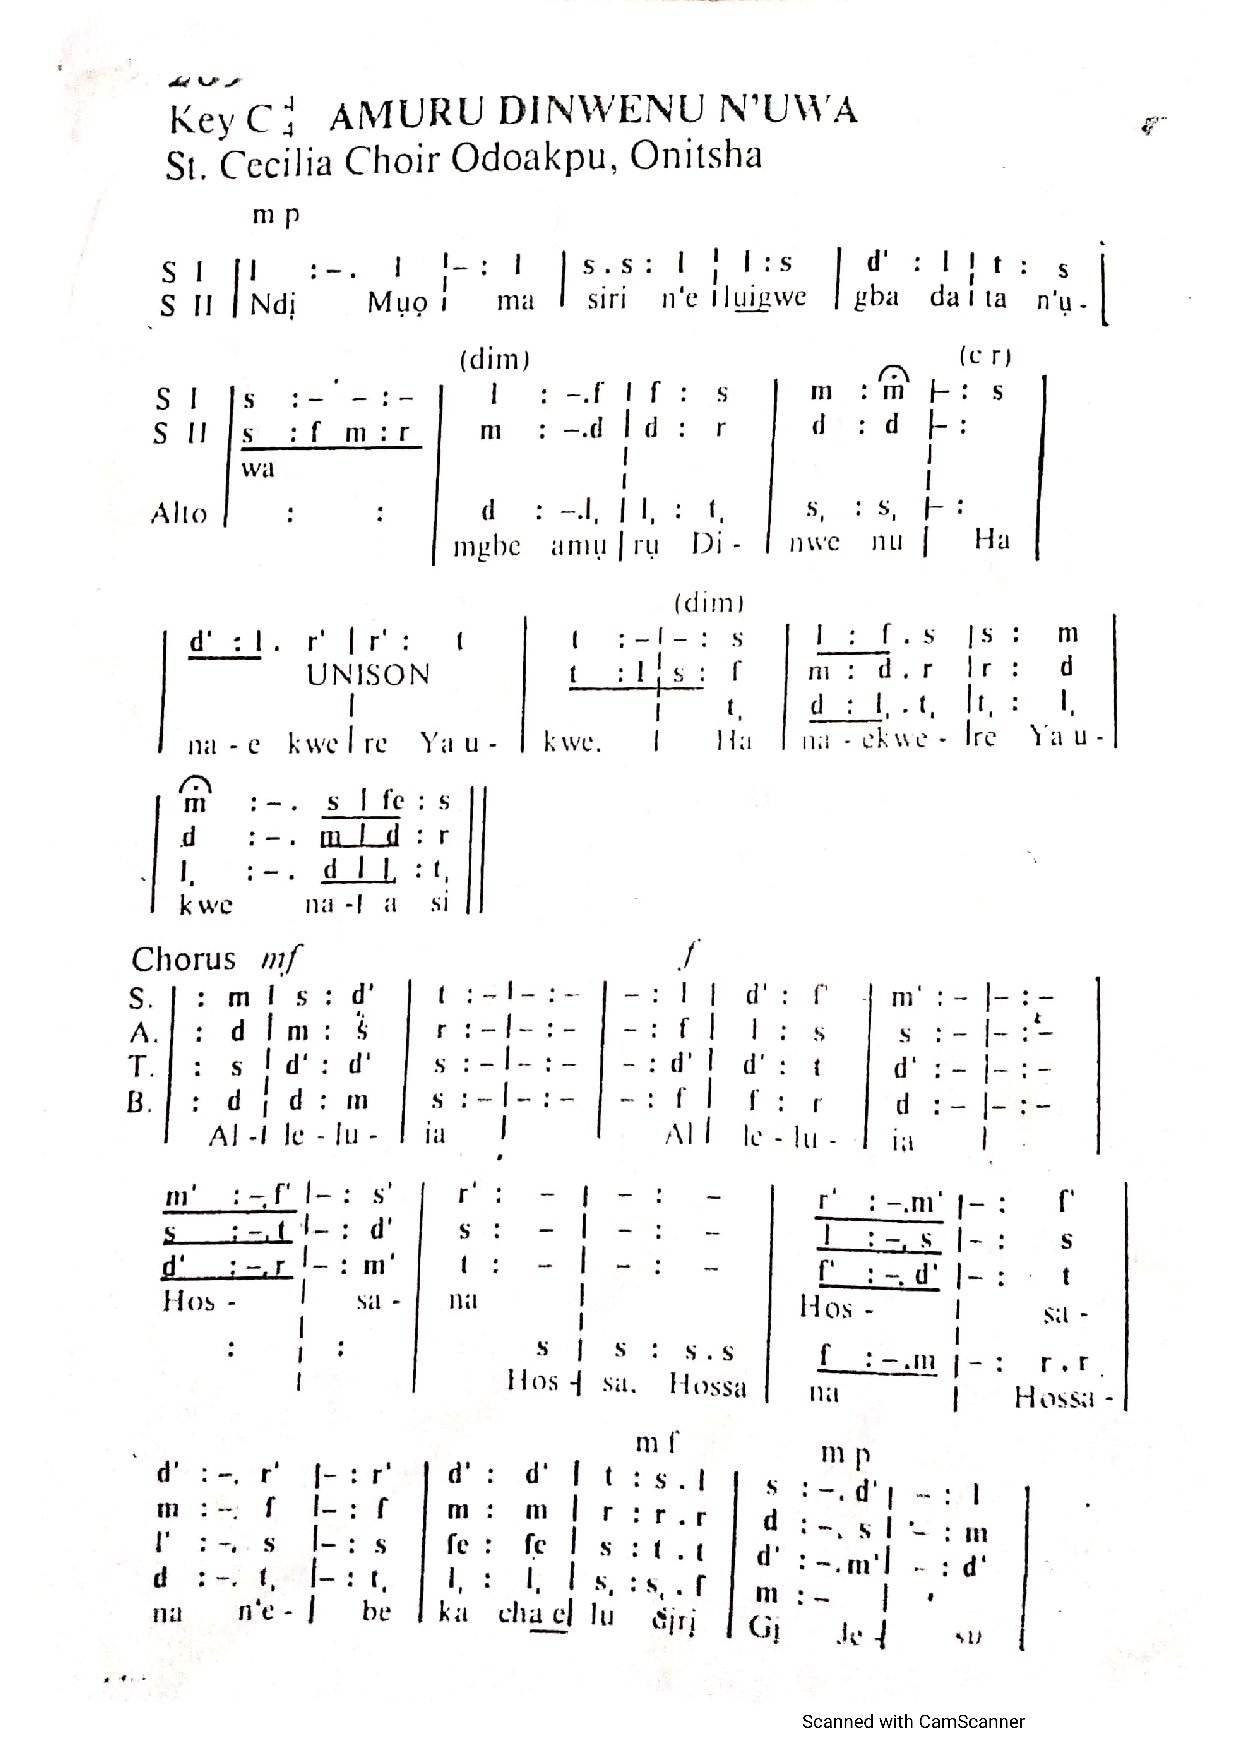 Key C 4/4 AMURU DINWENU N'UWA
St. Cecilia Choir Odoakpu, Onitsha
m p
S I | l :-. l ¦-: l | s.s: l ¦ l:s | d' : l ¦ t : s |
S II | Ndị Mụọ ¦ ma | siri n'e ¦ luigwe | gba da ¦ ta n'ụ- |
(dim) (c r)
S I | s :- - :- | l :-.f | f : s | m : m |-: s |
S II | s :f m:r | m :-.d | d : r | d : d |-: |
wa
Alto | : : | d :-.l, | l, : t, | s, : s, |-: |
| mgbe amụ | rụ Di- | nwe nu | Ha |
(dim)
| d' :l. r' | r' : t | t :-|-: s | l : f.s |s : m |
UNISON | t :l ¦ s: f | m : d.r |r : d |
| t, | d : l,.t, |t, : l, |
| na-e kwe | re Ya u- | kwe. | Ha | na-ekwe- | re Ya u- |
| m :-. s | fe : s ||
| d :-. m | d : r ||
| l, :-. d | l, : t, ||
| kwe na-| a si ||
Chorus mf f
S. | : m | s : d' | t :-|-:- | -: l | d' : f' | m' :-|-:- |
A. | : d | m : s | r :-|-:- | -: f | l : s | s :-|-:- |
T. | : s | d' : d' | s :-|-:- | -: d' | d' : t | d' :-|-:- |
B. | : d ¦ d : m | s :-|-:- | -: f | f : r | d :-|-:- |
| Al-| le-lu- | ia | | Al | le-lu- | ia | |
m' :-.f' |-: s' | r' : - | - : - | r' :-.m' |-: f' |
s :-.t |-: d' | s : - | - : - | l :-.s |-: s |
d' :-.r |-: m' | t : - | - : - | f' :-.d' |-: t |
Hos- | sa- | na | | Hos- | sa- |
: | : | s | s : s.s | f :-.m |-: r.r |
Hos-| sa. Hossa | na | Hossa- |
m f m p
d' :-. r' |-: r' | d' : d' | t : s.l | s :-.d' | -: l |
m :-. f |-: f | m : m | r : r.r | d :-.s | -: m |
l' :-. s |-: s | fe : fe | s : t.t | d' :-.m' | -: d' |
d :-. t, |-: t, | l, : l, | s, : s,.f | m :- | |
na n'e-| be | ka cha e| lu dịrị | Gị Je-| su |
Scanned with CamScanner